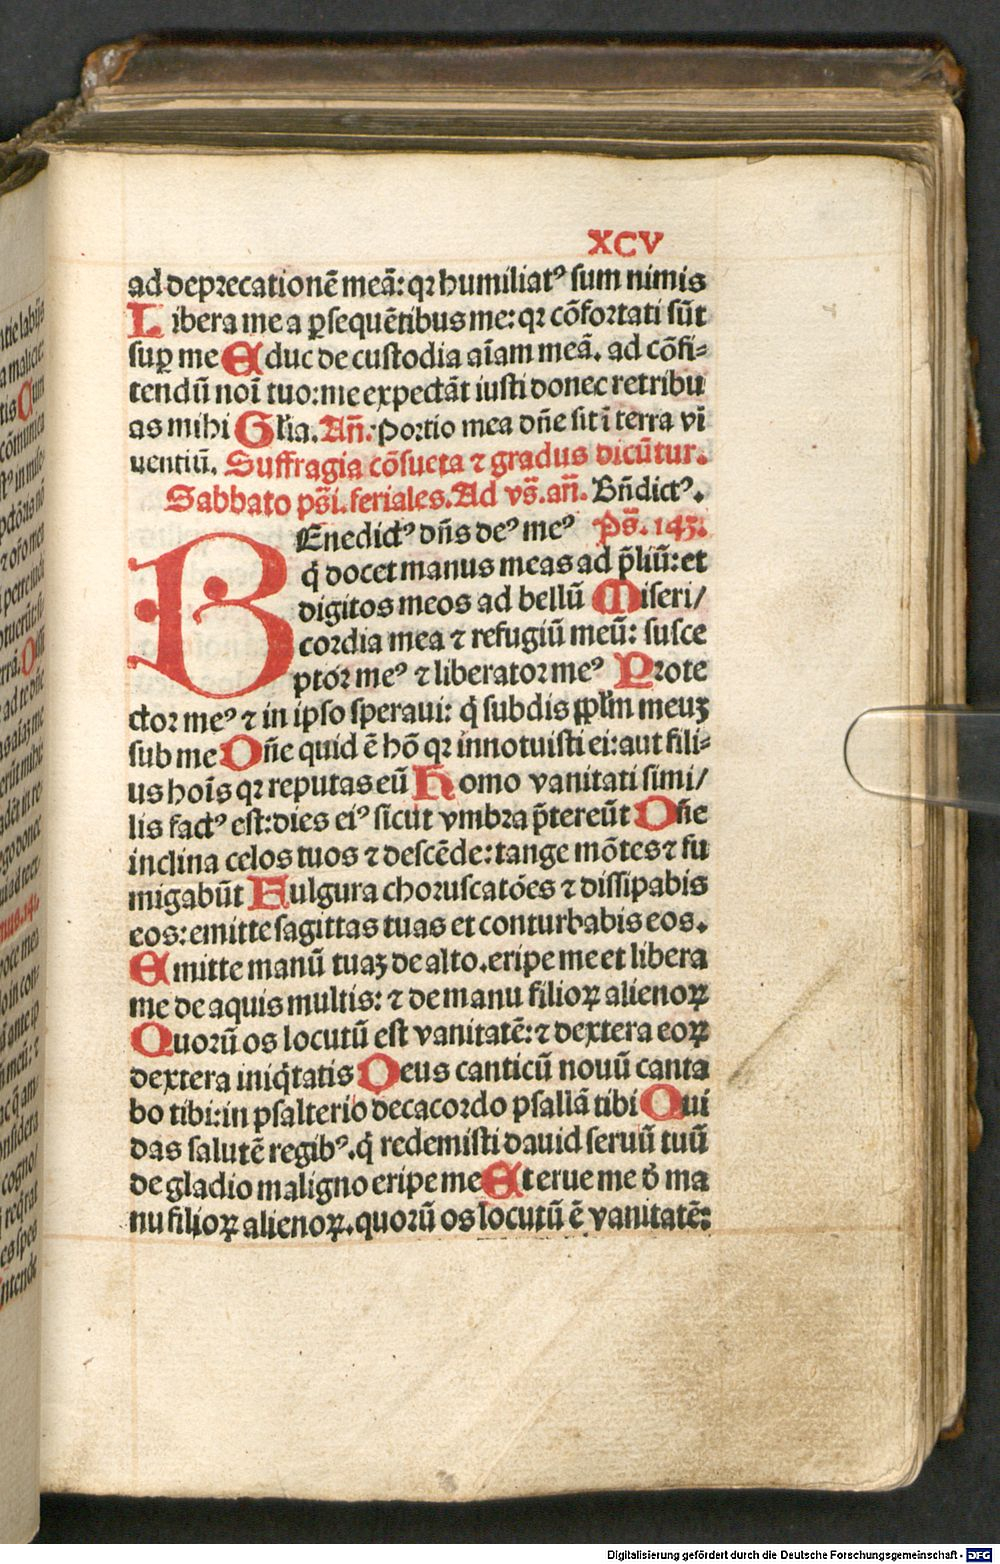 XCV
ad deprecationē meā: qꝛ humiliatꝰ sum nimis
Libera me a ꝑsequētibus me: qꝛ cōfortati sūt
suꝑ me Educ de custodia aīam meā. ad cōfi-
tendū noī tuo: me expectāt iusti donec retribu
as mihi Gl̄ia. Añ. Portio mea dñe sit ī terra vī
uentiū. Suffragia cōsueta ⁊ gradus dicūtur.
Sabbato pš̄i. feriales. Ad vs̄. añ. Bñdictꝰ.
BEnedictꝰ dñs deꝰ meꝰ Ps̄. 143.
q̄ docet manus meas ad p̄liū: et
digitos meos ad bellū Miseri/
cordia mea ⁊ refugiū meū: susce
ptor meꝰ ⁊ liberator meꝰ Prote
ctor meꝰ ⁊ in ipso speraui: q̄ subdis pplm̄ meuꝫ
sub me Dñe quid ē hō qꝛ innotuisti ei: aut fili-
us hoīs qꝛ reputas eū Homo vanitati simi/
lis factꝰ est: dies eiꝰ sicut vmbra p̄tereūt Dñe
inclina celos tuos ⁊ descēde: tange mōtes ⁊ fu
migabūt Fulgura choruscatōes ⁊ dissipabis
eos: emitte sagittas tuas et conturbabis eos.
Emitte manū tuaꝫ de alto. eripe me et libera
me de aquis multis: ⁊ de manu filioꝝ alienoꝝ
Quorū os locutū est vanitatē: ⁊ dextera eoꝝ
dextera iniq̄tatis Deus canticū nouū canta
bo tibi: in psalterio decacordo psallā tibi Qui
das salutē regibꝰ. q̄ redemisti dauid seruū tuū
de gladio maligno eripe me Et erue me d̄ ma
nu filioꝝ alienoꝝ. quorū os locutū ē vanitatē:
Digitalisierung gefördert durch die Deutsche Forschungsgemeinschaft - DFG